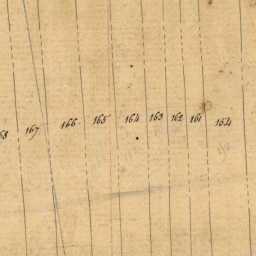 167 166 165 164 163 162 161 154